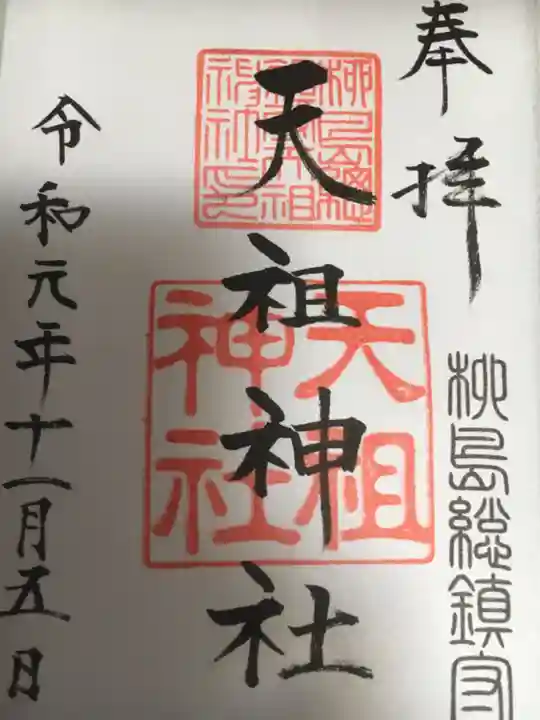 奉拝
柳島総鎮守
天祖神社
天祖
神社
柳島総
鎮守天祖
神社印
令和元年十一月五日